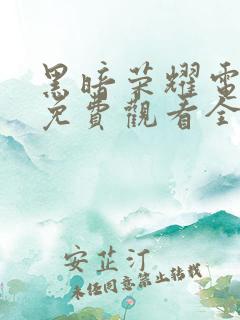 黑暗荣耀電
免費觀看全
安芷汀
未经同意禁止转载